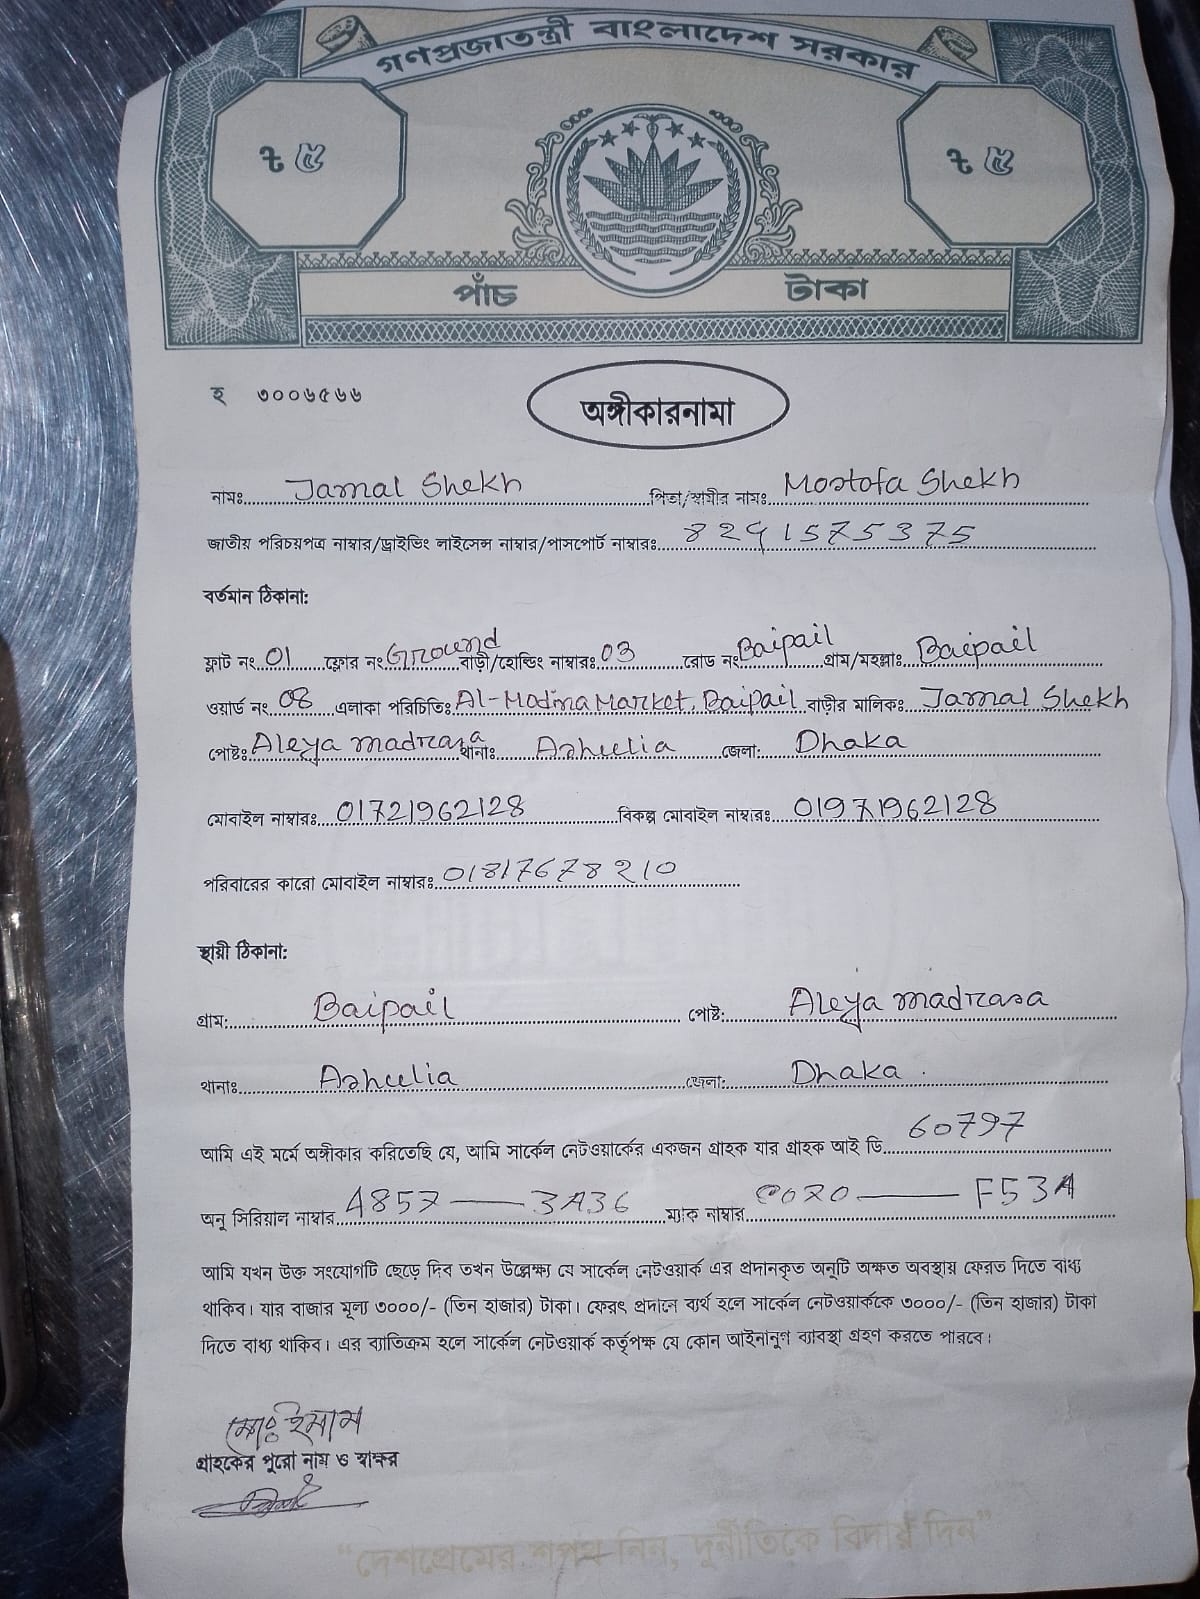 গণপ্রজাতন্ত্রী বাংলাদেশ সরকার
৳ ৫ ৳ ৫
পাঁচ টাকা
হ ৩০০৬৫৬৬
অঙ্গীকারনামা
নামঃ Jamal Shekh পিতা/স্বামীর নামঃ Mostofa Shekh
জাতীয় পরিচয়পত্র নাম্বার/ড্রাইভিং লাইসেন্স নাম্বার/পাসপোর্ট নাম্বারঃ 8241575375
বর্তমান ঠিকানা:
ফ্লাট নং 01 ফ্লোর নং Ground বাড়ী/হোল্ডিং নাম্বার: 03 রোড নং Baipail গ্রাম/মহল্লাঃ Baipail
ওয়ার্ড নং 08 এলাকা পরিচিতিঃ Al-Madina Market, Baipail বাড়ীর মালিকঃ Jamal Shekh
পোষ্টঃ Aleya madrasa থানাঃ Ashulia জেলা: Dhaka
মোবাইল নাম্বারঃ 01721962128 বিকল্প মোবাইল নাম্বারঃ 01971962128
পরিবারের কারো মোবাইল নাম্বারঃ 01817678210
স্থায়ী ঠিকানা:
গ্রাম: Baipail পোষ্ট: Aleya madrasa
থানাঃ Ashulia জেলা: Dhaka
আমি এই মর্মে অঙ্গীকার করিতেছি যে, আমি সার্কেল নেটওয়ার্কের একজন গ্রাহক যার গ্রাহক আই ডি 60797
অনু সিরিয়াল নাম্বার 4857 — 3A36 ম্যাক নাম্বার — F53A
আমি যখন উক্ত সংযোগটি ছেড়ে দিব তখন উল্লেক্ষ্য যে সার্কেল নেটওয়ার্ক এর প্রদানকৃত অনুটি অক্ষত অবস্থায় ফেরত দিতে বাধ্য
থাকিব। যার বাজার মূল্য ৩০০০/- (তিন হাজার) টাকা। ফেরৎ প্রদানে ব্যর্থ হলে সার্কেল নেটওয়ার্ককে ৩০০০/- (তিন হাজার) টাকা
দিতে বাধ্য থাকিব। এর ব্যাতিক্রম হলে সার্কেল নেটওয়ার্ক কর্তৃপক্ষ যে কোন আইনানুগ ব্যাবস্থা গ্রহণ করতে পারবে।
মোঃ ইমাম
গ্রাহকের পুরো নাম ও স্বাক্ষর
“দেশপ্রেমের শপথ নিন, দুর্নীতিকে বিদায় দিন”